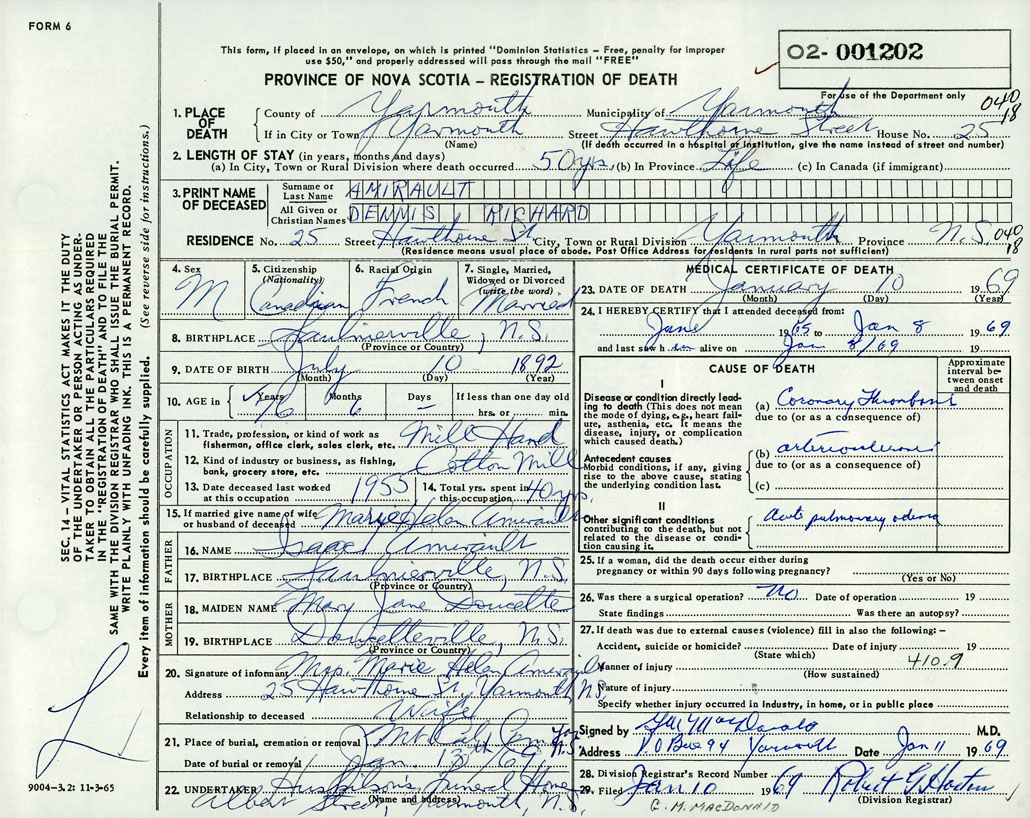 FORM 6
This form, if placed in an envelope, on which is printed "Dominion Statistics – Free, penalty for improper
use $50," and properly addressed will pass through the mail "FREE"
02- 001202
PROVINCE OF NOVA SCOTIA – REGISTRATION OF DEATH
For use of the Department only
040
18
1. PLACE OF DEATH County of Yarmouth Municipality of Yarmouth
If in City or Town Yarmouth Street Hawthorne Street House No. 25
(Name) (If death occurred in a hospital or institution, give the name instead of street and number)
2. LENGTH OF STAY (in years, months and days)
(a) In City, Town or Rural Division where death occurred 50 yrs. (b) In Province Life (c) In Canada (if immigrant)
3. PRINT NAME OF DECEASED
Surname or Last Name AMIRAULT
All Given or Christian Names DENNIS RICHARD
RESIDENCE No. 25 Street Hawthorne St City, Town or Rural Division Yarmouth Province N.S. 040
18
(Residence means usual place of abode. Post Office Address for residents in rural parts not sufficient)
4. Sex M
5. Citizenship (Nationality) Canadian
6. Racial Origin French
7. Single, Married, Widowed or Divorced (write the word) Married
8. BIRTHPLACE Saulnierville, N.S.
(Province or Country)
9. DATE OF BIRTH July 10 1892
(Month) (Day) (Year)
10. AGE in Years 76 Months 6 Days – If less than one day old
hrs. or min.
OCCUPATION
11. Trade, profession, or kind of work as fisherman, office clerk, sales clerk, etc. Mill Hand
12. Kind of industry or business, as fishing, bank, grocery store, etc. Cotton Mill
13. Date deceased last worked at this occupation 1955 14. Total yrs. spent in this occupation 40 yrs.
15. If married give name of wife or husband of deceased Marie Helen Amirault
FATHER
16. NAME Isaac Amirault
17. BIRTHPLACE Saulnierville, N.S.
(Province or Country)
MOTHER
18. MAIDEN NAME Mary Jane Doucette
19. BIRTHPLACE Doucetteville, N.S.
(Province or Country)
20. Signature of informant Mrs. Marie Helen Amirault
Address 25 Hawthorne St, Yarmouth N.S.
Relationship to deceased Wife
21. Place of burial, cremation or removal Mt. Cal. Cem Yar. N.S.
Date of burial or removal Jan 13th 69
22. UNDERTAKER Huskilson's Funeral Home
(Name and address)
Albert Street, Yarmouth, N.S.
MEDICAL CERTIFICATE OF DEATH
23. DATE OF DEATH January 10 1969
(Month) (Day) (Year)
24. I HEREBY CERTIFY that I attended deceased from:
June 1965 to Jan 8 1969
and last saw him alive on Jan 8/69 19
CAUSE OF DEATH
Approximate interval between onset and death
I
Disease or condition directly leading to death (This does not mean the mode of dying, e.g., heart failure, asthenia, etc. It means the disease, injury, or complication which caused death.)
(a) Coronary Thrombosis
due to (or as a consequence of)
Antecedent causes
Morbid conditions, if any, giving rise to the above cause, stating the underlying condition last.
(b) arteriosclerosis
due to (or as a consequence of)
(c)
II
Other significant conditions contributing to the death, but not related to the disease or condition causing it.
Acute pulmonary edema
25. If a woman, did the death occur either during pregnancy or within 90 days following pregnancy?
(Yes or No)
26. Was there a surgical operation? No Date of operation 19
State findings Was there an autopsy?
27. If death was due to external causes (violence) fill in also the following: –
Accident, suicide or homicide? Date of injury 19
(State which)
Manner of injury 410.9
(How sustained)
Nature of injury
Specify whether injury occurred in industry, in home, or in public place
Signed by G M MacDonald M.D.
Address P O Box 94 Yarmouth Date Jan 11 1969
28. Division Registrar's Record Number
29. Filed Jan 10 1969 Robert G. Horton
(Division Registrar)
G. M. MACDONALD
SEC. 14 – VITAL STATISTICS ACT MAKES IT THE DUTY
OF THE UNDERTAKER OR PERSON ACTING AS UNDER-
TAKER TO OBTAIN ALL THE PARTICULARS REQUIRED
IN THE "REGISTRATION OF DEATH" AND TO FILE THE
SAME WITH THE DIVISION REGISTRAR WHO SHALL ISSUE THE BURIAL PERMIT.
WRITE PLAINLY WITH UNFADING INK. THIS IS A PERMANENT RECORD.
Every item of information should be carefully supplied. (See reverse side for instructions.)
9004-3.2: 11-3-65